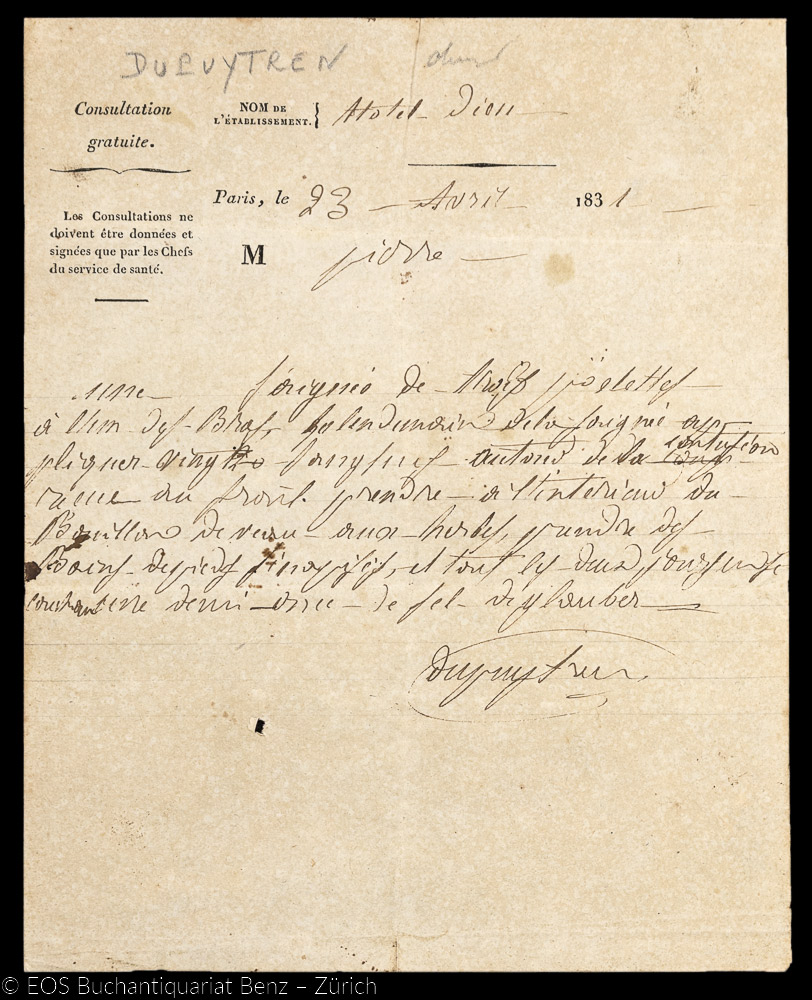 DUPUYTREN
Consultation
gratuite.
NOM DE
L'ÉTABLISSEMENT. { Hotel Dieu
Paris, le 23 Avril 1831
Les Consultations ne
doivent être données et
signées que par les Chefs
du service de santé.
M pierre
une Saignée de trois poëlettes
à l'un des Bras, le lendemain de la saignée ap
pliquer vingt sangsues autour de la contusion
au front. prendre à l'intérieur du
Bouillon de veau aux herbes, prendre des
Bains de pieds sinapisés, et tous les deux jours
une demi once de sel de glauber
dupuytren
© EOS Buchantiquariat Benz – Zürich